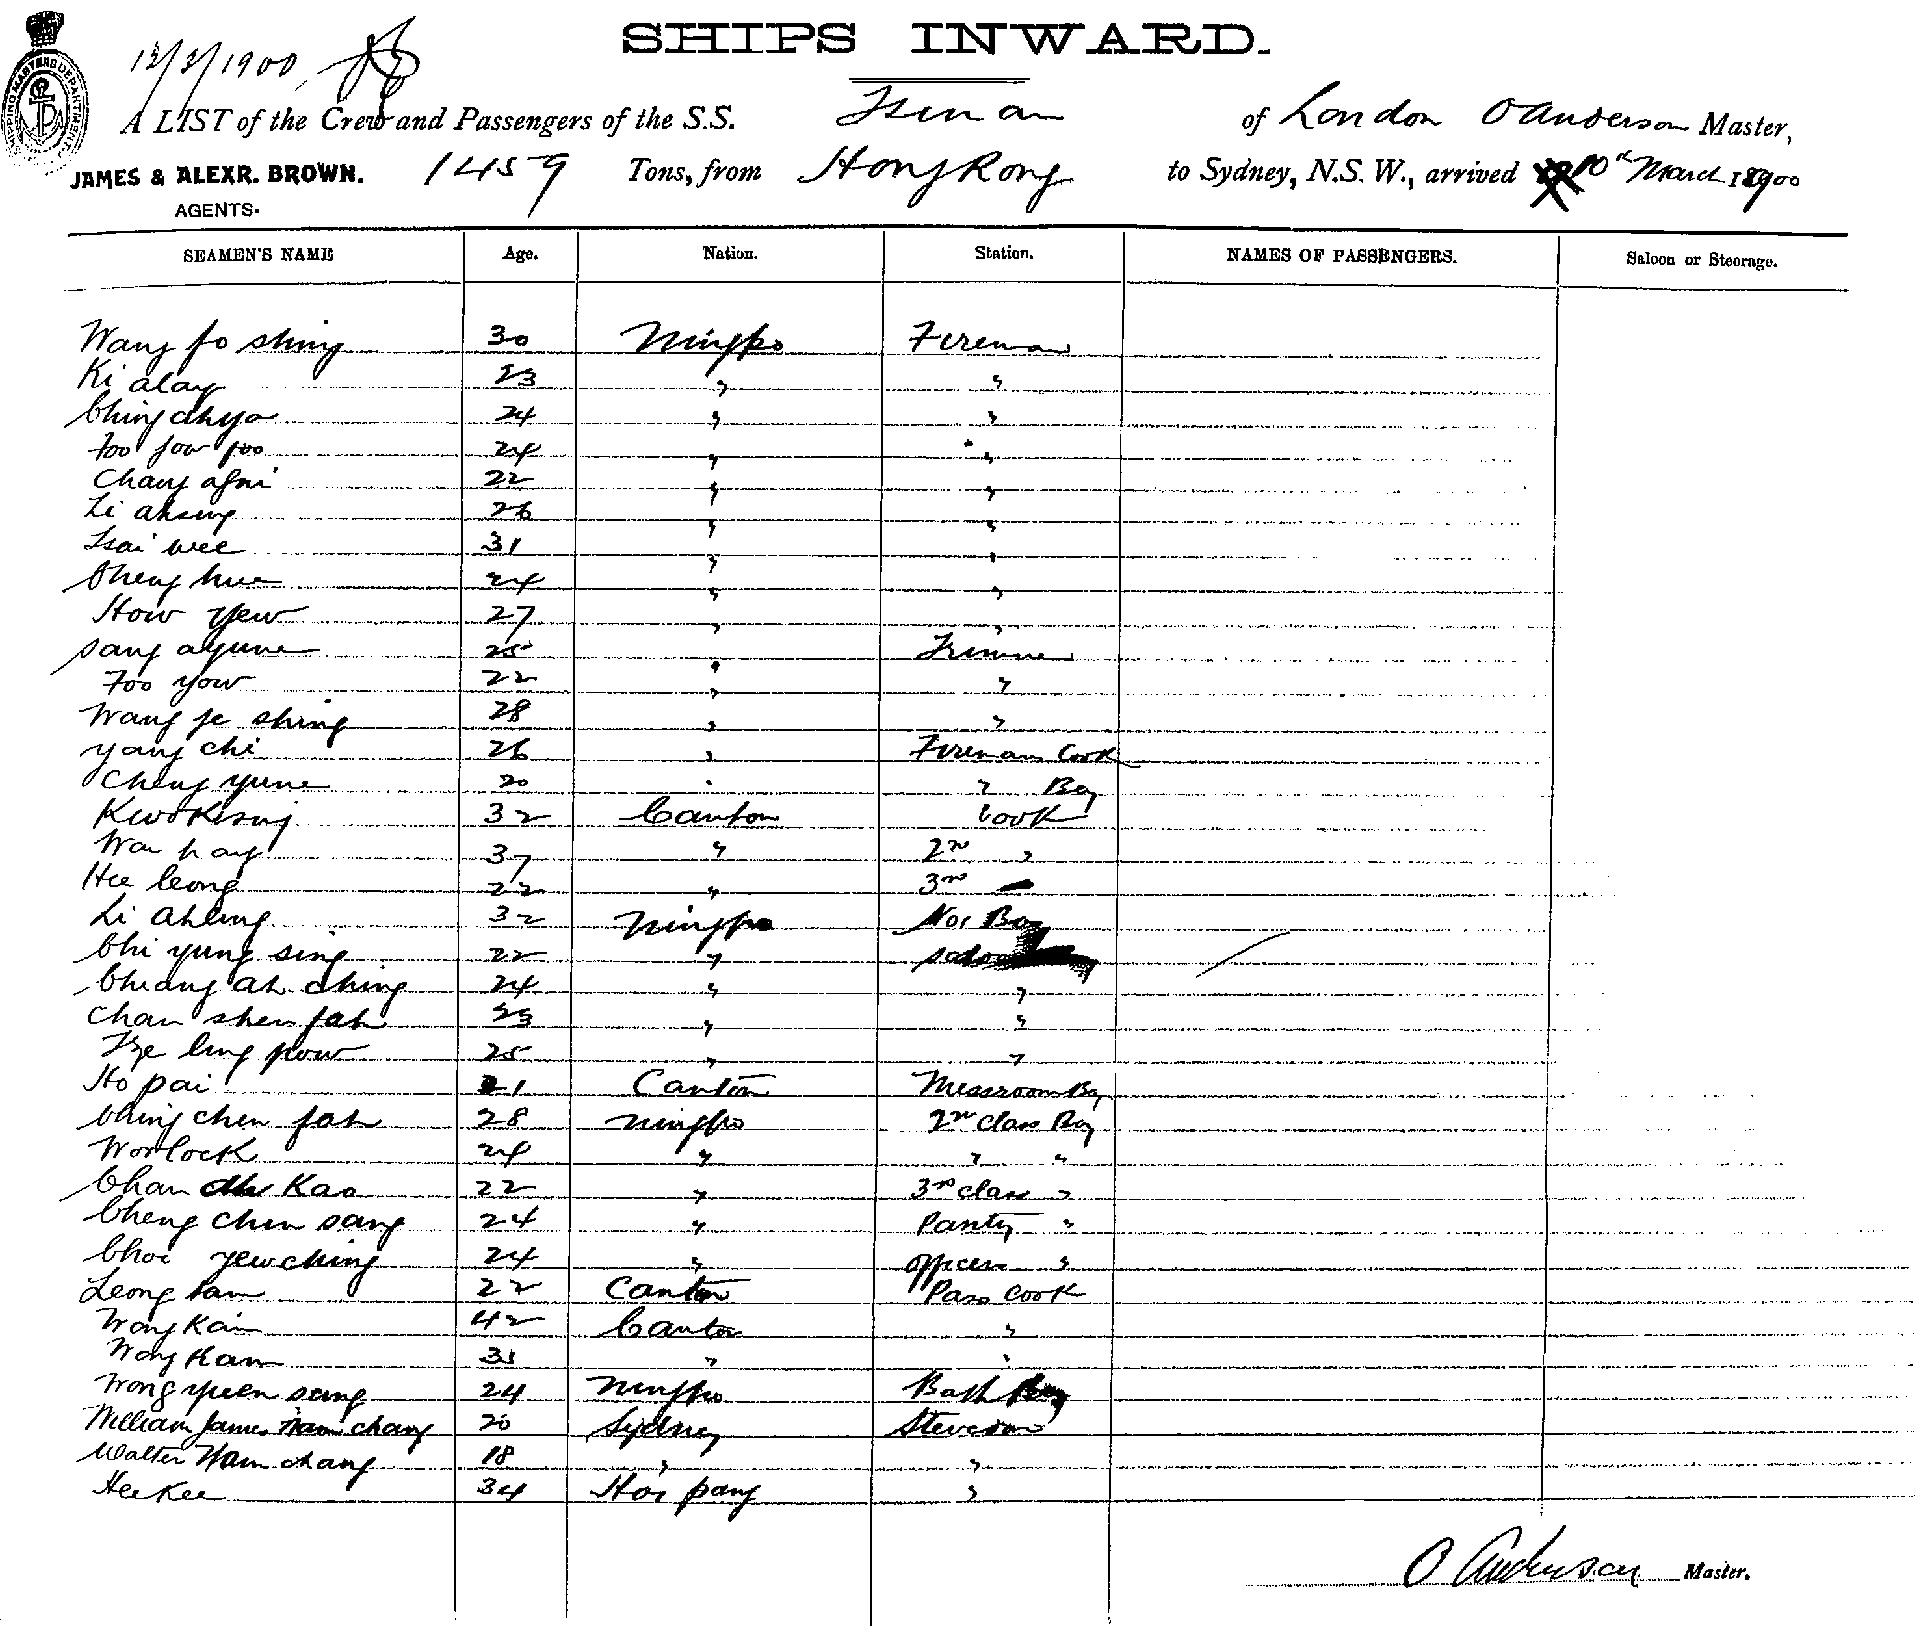 SHIPS INWARD.
12/3/1900
SHIPPING MASTERS DEPARTMENT
A LIST of the Crew and Passengers of the S.S. Tsinan of London O Anderson Master,
JAMES & ALEXR. BROWN. 1459 Tons, from Hong Kong to Sydney, N.S.W., arrived 10th March 1900
AGENTS.
SEAMEN'S NAME Age. Nation. Station. NAMES OF PASSENGERS. Saloon or Steerage.
Wang fo shing 30 Ningpo Fireman
Ki alay 23 " "
Ching ahyo 24 " "
Foo fow foo 24 " "
Chang afni 22 " "
Li ahsing 26 " "
Tsai wee 31 " "
Cheng hue 24 " "
How yew 27 " "
Sang ayune 25 " Trimmer
Foo yow 22 " "
Wang je shing 28 " "
yang chi 26 " Fireman Cook
Cheng yune 20 " " Boy
Kwok sing 32 Canton Cook
Wa hay 37 " 2nd "
Hee leong 22 " 3rd
Li Ahling 32 Ningpo No1 Boy
Chi yung sing 22 " saloon
Cheang ah ching 24 " "
Chan shen fah 23 " "
Tze ling pow 25 " "
Ho pai 21 Canton Messroom Boy
Ching chen fah 28 Ningpo 2nd class Boy
Worlock 24 " " "
Chan ah Kao 22 " 3rd class "
Cheng chin sang 24 " Pantry "
Choi yew ching 24 " officers "
Leong tam 22 Canton Pass Cook
Wong Kai 42 Canton "
Wong Kam 31 " "
Wong yuen sang 24 Ningpo Bath Boy
William James Nam chang 20 Sydney Stevedore
Walter Nam chang 18 " "
Hee Kee 34 Hoi pang "
O Anderson Master.